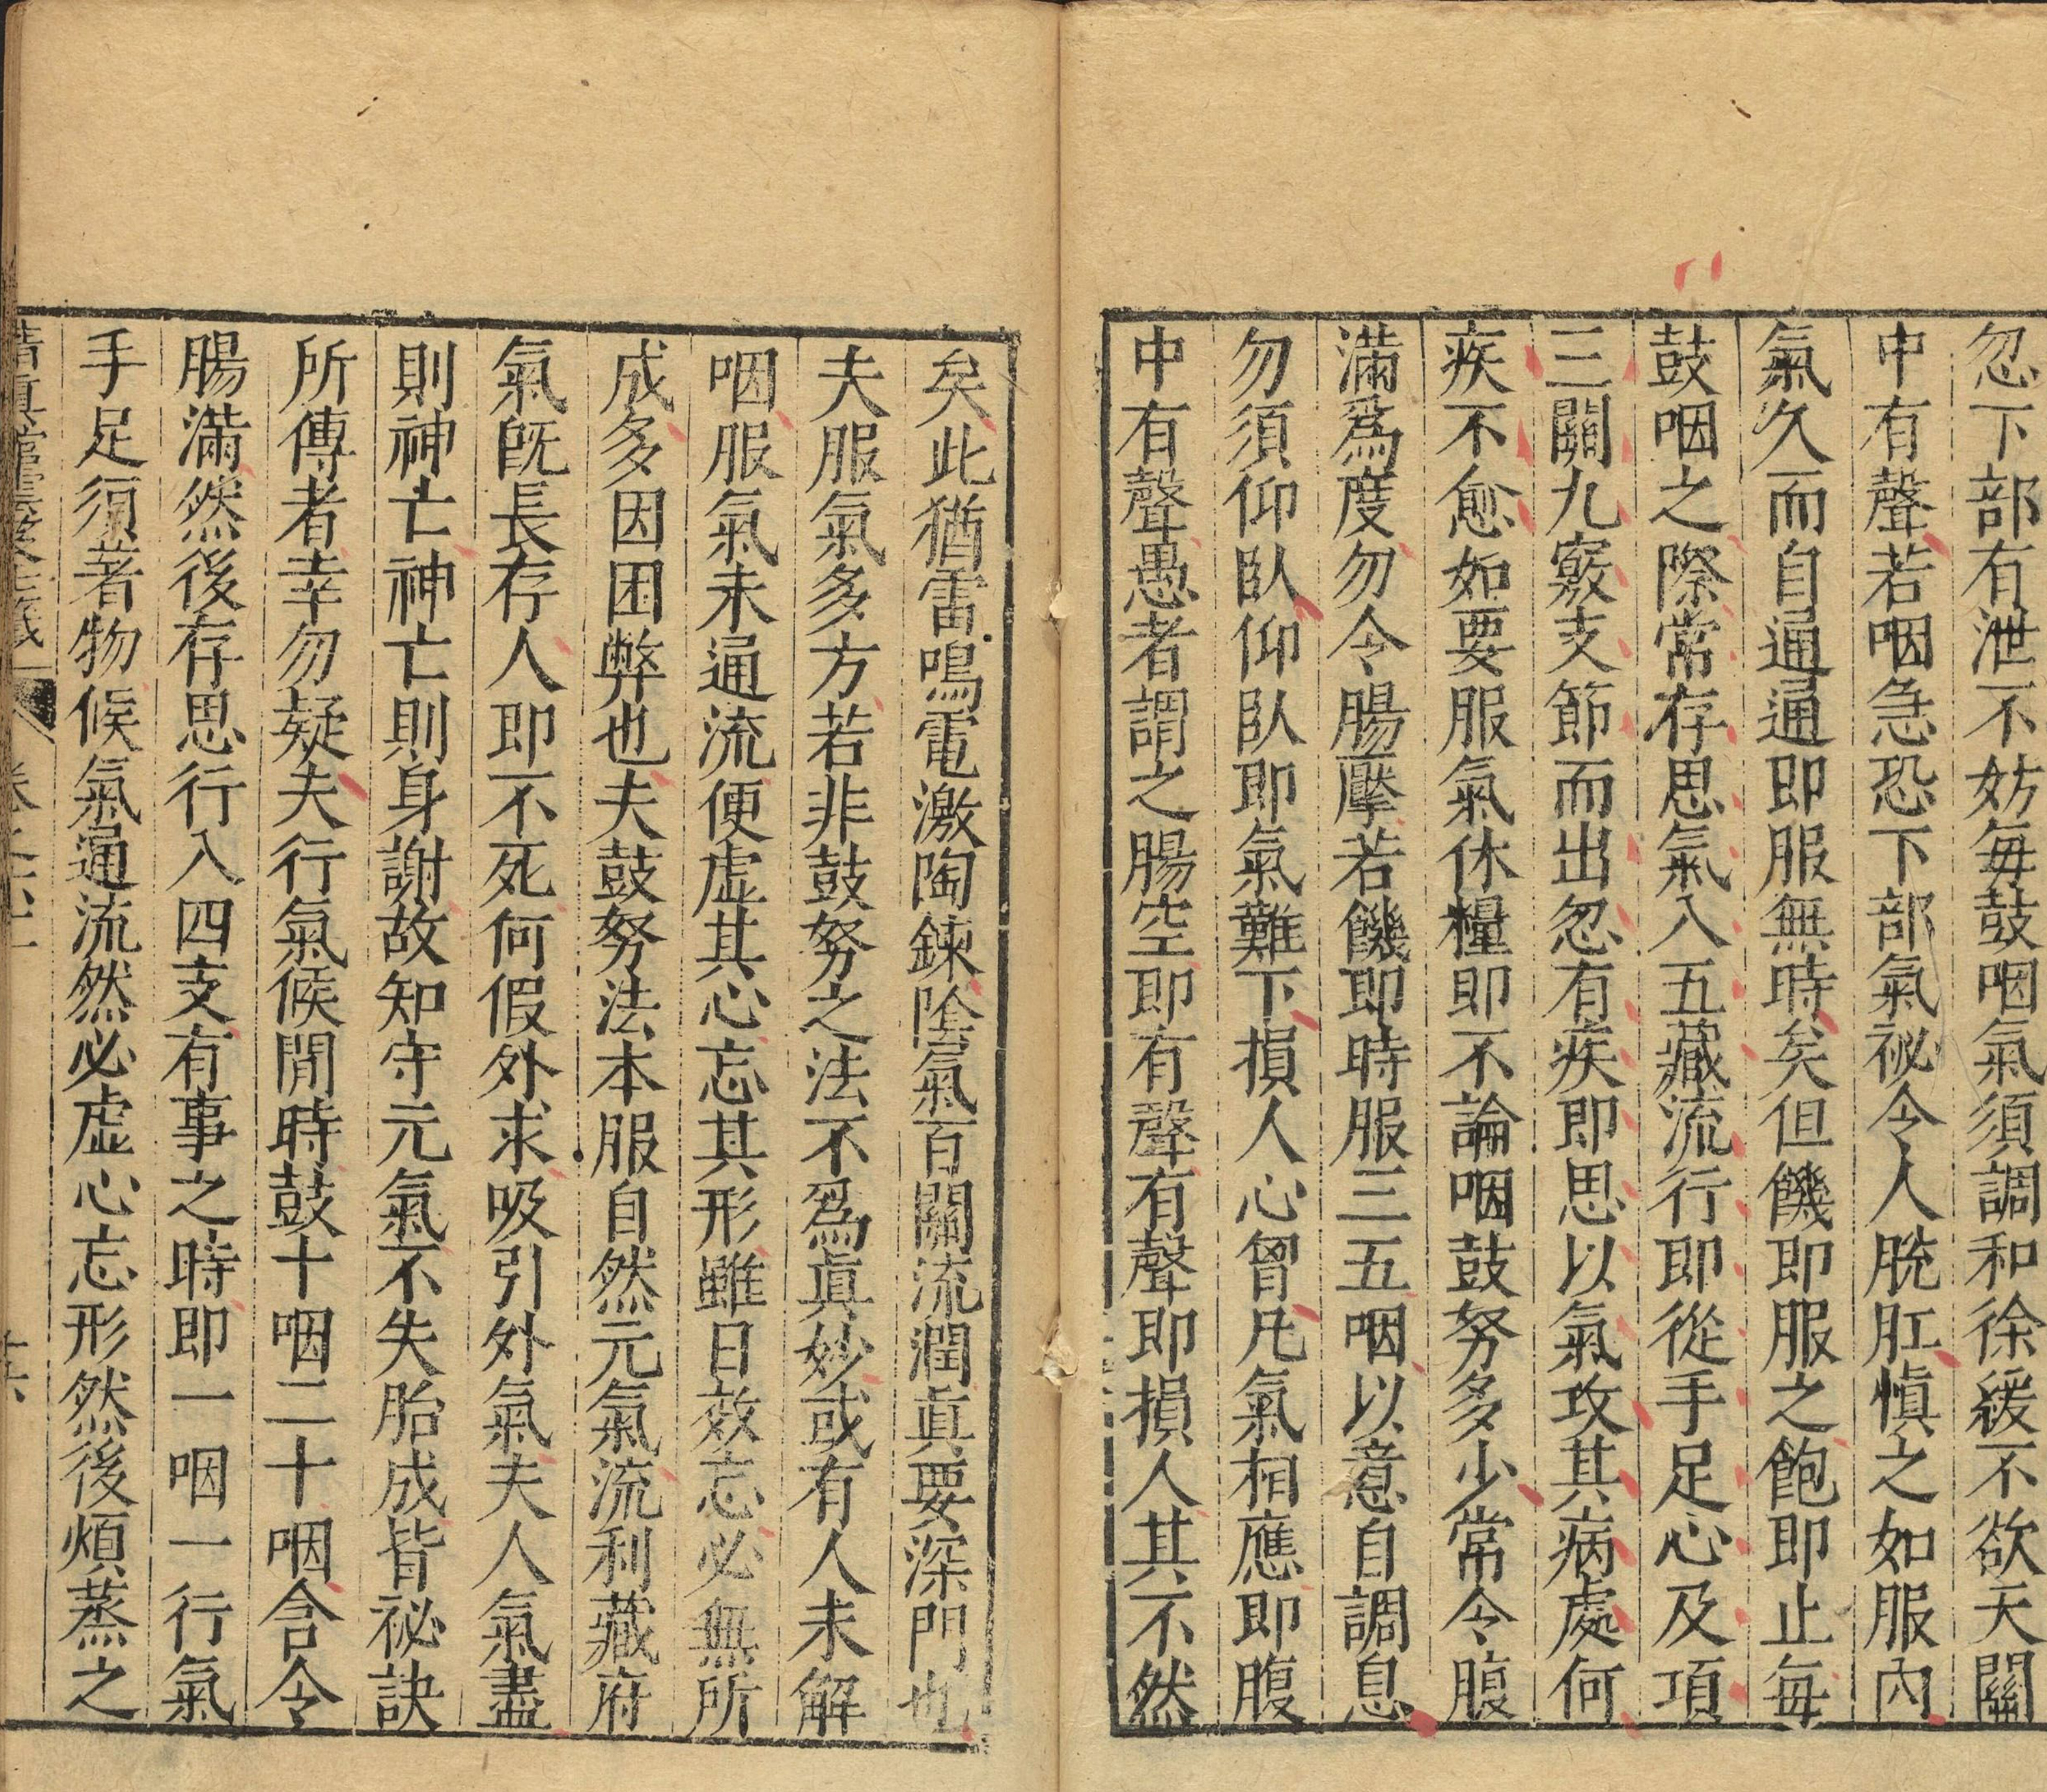 忽下部有泄不妨每鼓咽氣須調和徐緩不欲天關
中有聲若咽急恐下部氣祕令人脫肛慎之如服內
氣久而自通通即服無時矣但饑即服之飽即止每
鼓咽之際常存思氣入五藏流行即從手足心及項
三關九竅支節而出忽有疾即思以氣攻其病處何
疾不愈如要服氣休糧即不論咽鼓努多少常令腹
滿爲度勿令腸壓若饑即時服三五咽以意自調息
勿須仰臥仰臥即氣難下損人心胷凡氣相應即腹
中有聲愚者謂之腸空即有聲有聲即損人其不然
矣此猶雷鳴電激陶鍊陰氣百關流潤眞要深門也
夫服氣多方若非鼓努之法不爲眞妙或有人未解
咽服氣未通流便虛其心忘其形雖日效忘必無所
成多因困弊也夫鼓努法本服自然元氣流利藏府
氣旣長存人即不死何假外求吸引外氣夫人氣盡
則神亡神亡則身謝故知守元氣不失胎成皆祕訣
所傳者幸勿疑夫行氣候閒時鼓十咽二十咽含令
腸滿然後存思行入四支有事之時即一咽一行氣
手足須著物候氣通流然必虛心忘形然後煩蒸之